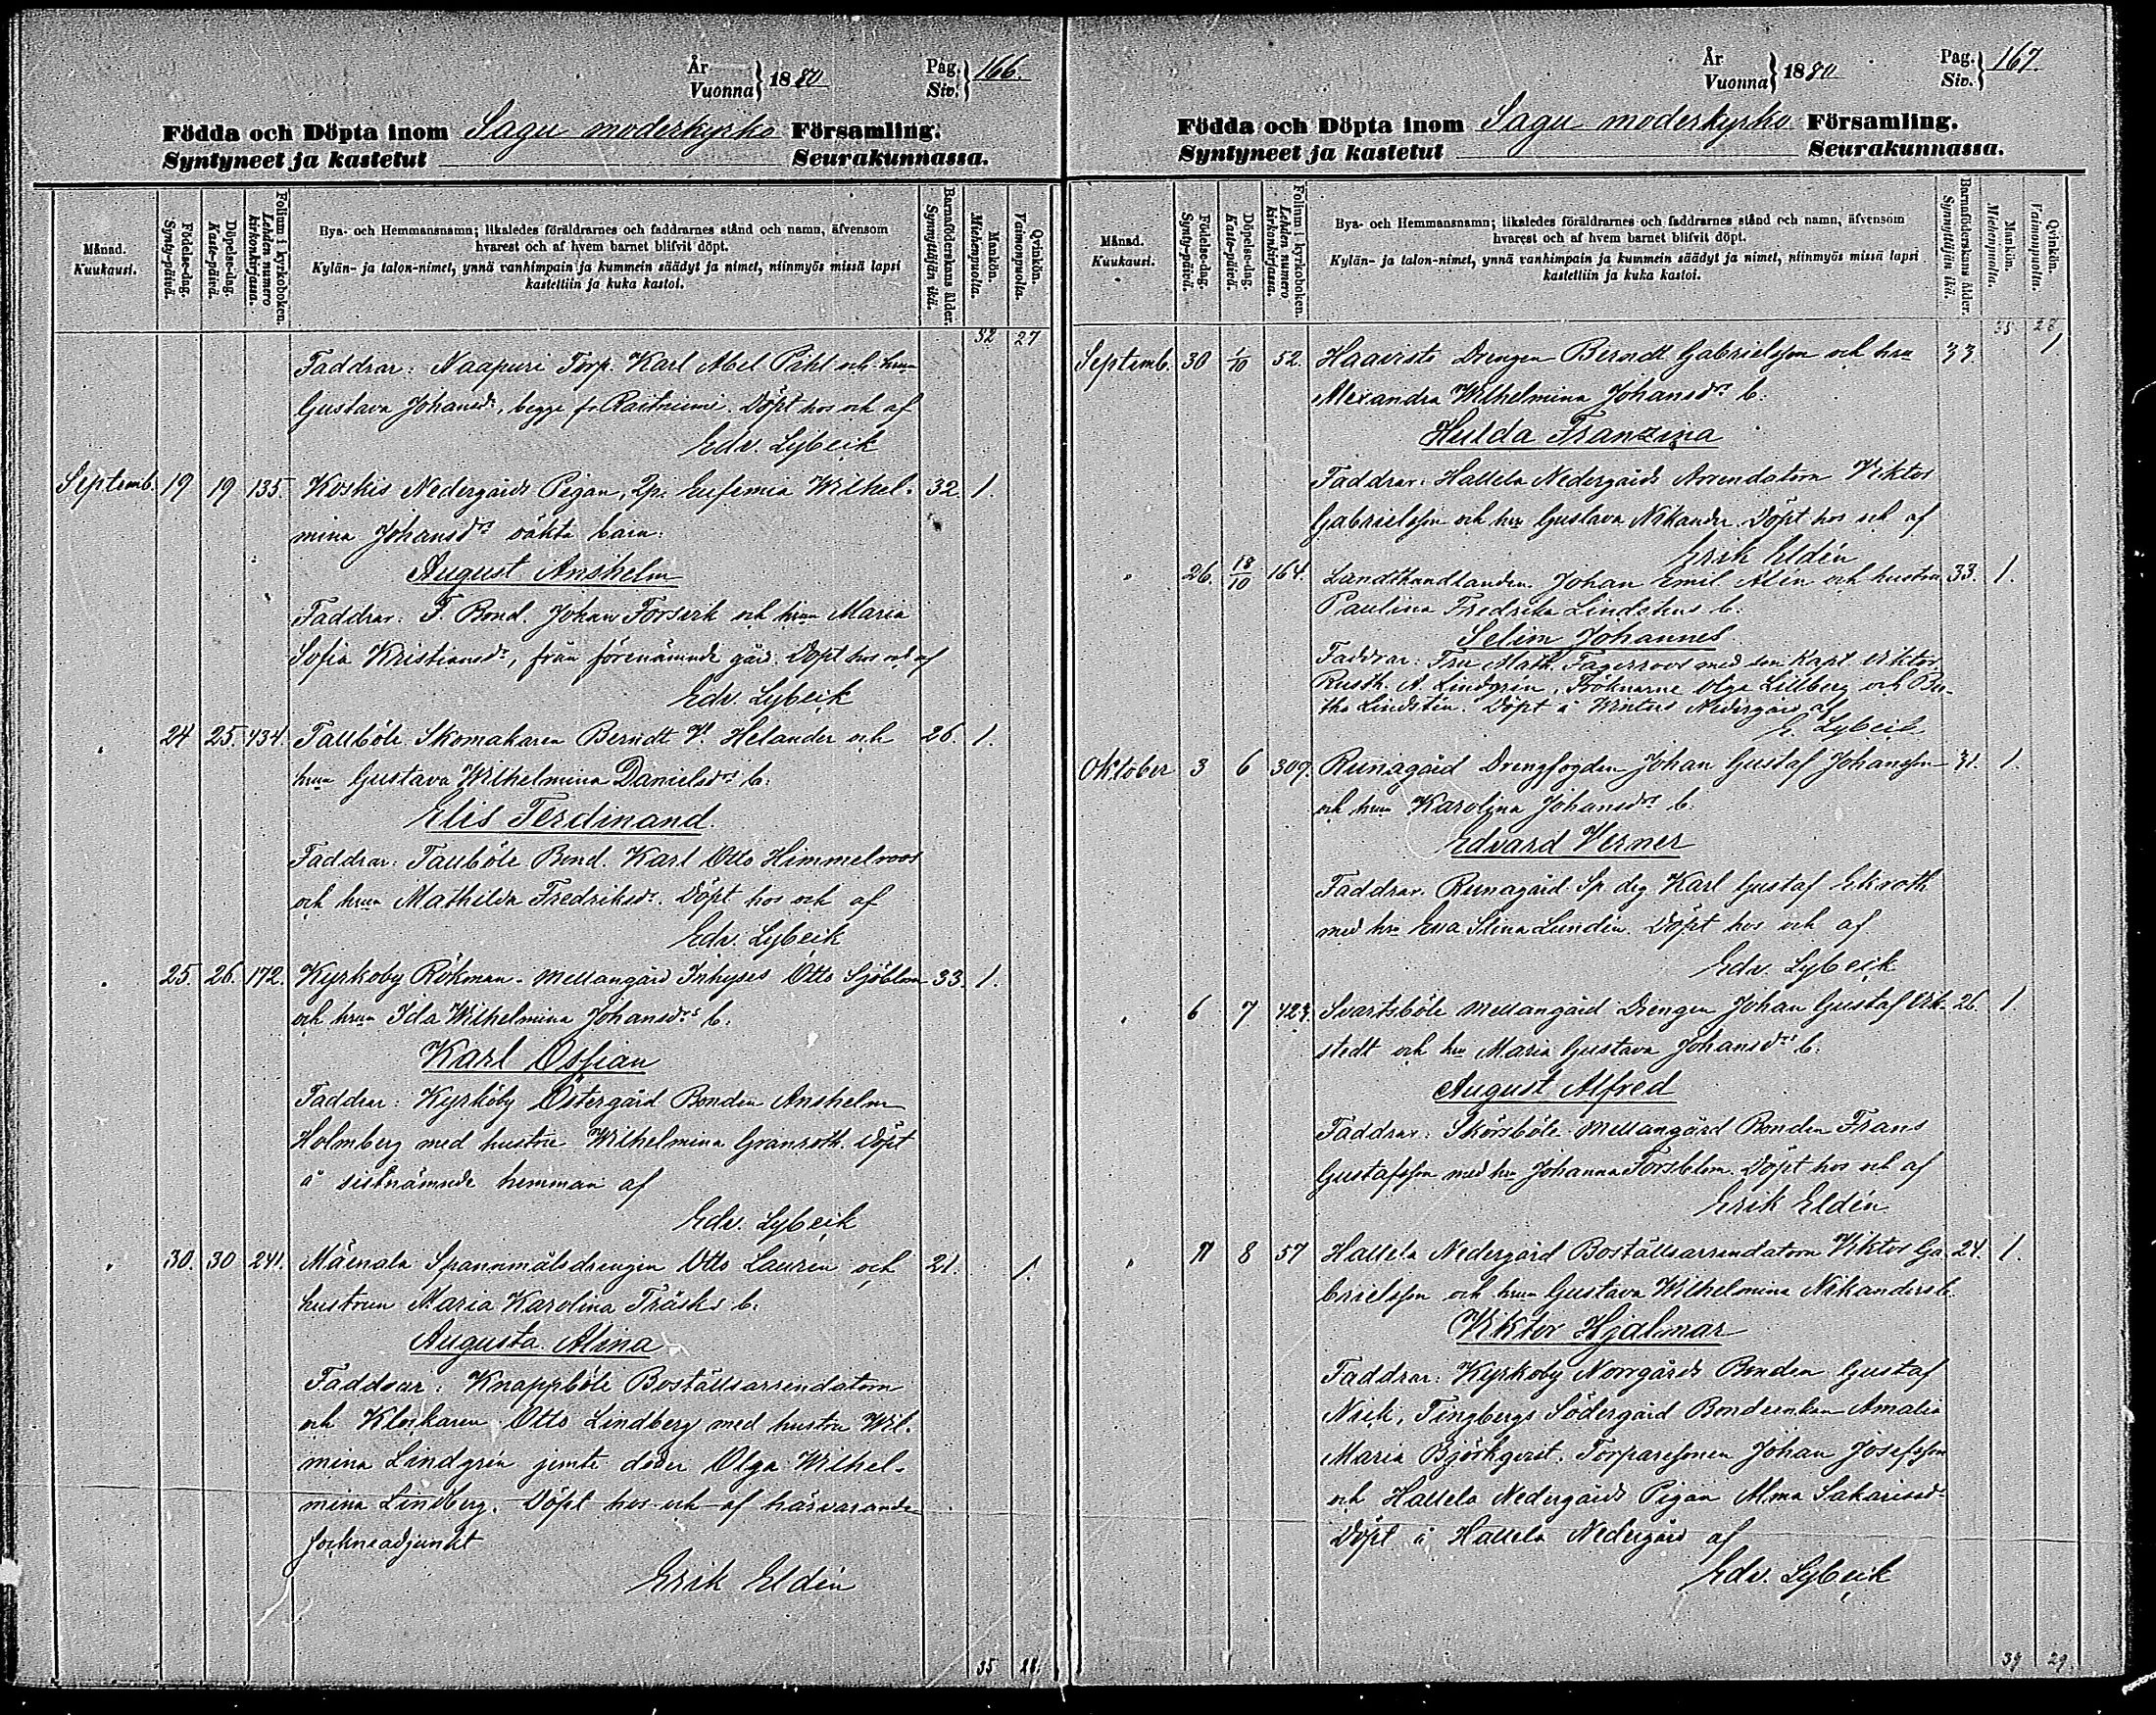 År
Vuonna } 1880
Pag.
Siv. } 166.
Födda och Döpta inom Sagu moderkyrko Församling.
Syntyneet ja kastetut Seurakunnassa.
Månad.
Kuukausi.
Födelse-dag.
Synty-päivä.
Döpelse-dag.
Kaste-päivä.
Folium i kyrkoboken.
Lehden numero kirkonkirjassa.
Bya- och Hemmansnamn; likaledes föräldrarnes och faddrarnes stånd och namn, äfvensom
hvarest och af hvem barnet blifvit döpt.
Kylän- ja talon-nimet, ynnä vanhimpain ja kummein säädyt ja nimet, niinmyös missä lapsi
kastettiin ja kuka kastoi.
Barnaföderskans ålder.
Synnyttäjän ikä.
Mankön.
Miehenpuolia.
Qvinkön.
Vaimonpuolia.
32 27
Faddrar: Naapuri Torp. Karl Abel Påhl och hrun
Gustava Johansdr, begge fr. Raitniemi. Döpt hos och af
Edv. Lybeck
Septemb. 19 19 135. Koskis Nedergårds Pigan, Eufemia Wilhel- 32. 1.
mina Johansdrs oäkta barn:
August Anshelm
Faddrar: F. Bond. Johan och hrun Maria
Sofia Kristiansdr, från förenämnde gård. Döpt hos och af
Edv. Lybeck
" 24 25. 434. Tallböle Skomakaren Berndt V. Helander och 26. 1.
hrun Gustava Wilhelmina Danielsdrs b:
Elis Ferdinand.
Faddrar: Tallböle Bond. Karl Otto Himmelroos
och hrun Mathilda Fredriksdr. Döpt hos och af
Edv. Lybeck
" 25. 26. 172. Kyrkoby Rökman-Mellangård Inhyses Otto Sjöblom 33. 1.
och hrun Ida Wilhelmina Johansdrs b.
Karl Ossian
Faddrar: Kyrkoby Östergård Bonden Anshelm
Holmberg med hustru Wilhelmina Granroth. Döpt
å sistnämnde hemman af
Edv. Lybeck
" 30. 30 241. Mäenala Spannmålsdrengen Otto Lauren och 21. 1.
hustrun Maria Karolina Träsks b.
Augusta Alina
Faddrar: Knappböle Boställsarrendatorn
och Klockaren Otto Lindberg med hustru Wil-
mina Lindgrén jemte doter Olga Wilhel-
mina Lindberg. Döpt hos och af härvarande
sockneadjunkt
Erik Eldén
35 28.
År
Vuonna } 1880
Pag.
Siv. } 167.
Födda och Döpta inom Sagu moderkyrko Församling.
Syntyneet ja kastetut Seurakunnassa.
Månad.
Kuukausi.
Födelse-dag.
Synty-päivä.
Döpelse-dag.
Kaste-päivä.
Folium i kyrkoboken.
Lehden numero kirkonkirjassa.
Bya- och Hemmansnamn; likaledes föräldrarnes och faddrarnes stånd och namn, äfvensom
hvarest och af hvem barnet blifvit döpt.
Kylän- ja talon-nimet, ynnä vanhimpain ja kummein säädyt ja nimet, niinmyös missä lapsi
kastettiin ja kuka kastoi.
Barnaföderskans ålder.
Synnyttäjän ikä.
Mankön.
Miehenpuolia.
Qvinkön.
Vaimonpuolia.
35 28
Septemb. 30 1/10 52. Haavisto Drengen Berndt Gabrielsson och hru 33. 1
Alexandra Wilhelmina Johansdrs b.
Hulda Franzina
Faddrar: Hallela Nedergårds Arrendatorn Viktor
Gabrielsson och hru Gustava Nikander. Döpt hos och af
Erik Eldén
" 26. 18/10 164. Landthandlanden Johan Emil Alén och hustru 33. 1.
Paulina Fredrika Lindstens b.
Selim Johannes
Faddrar: Fru Math. Fagerroos med son Kapt Viktor,
Rusth. A. Lindgrén, Fröknarne Olga Lillberg och Ber-
tha Lindstén. Döpt å Winters Nedergård af
E. Lybeck
Oktober 3 6 309. Runagård Drengfogden Johan Gustaf Johansson 31. 1.
och hrun Karolina Johansdrs b.
Edvard Verner
Faddrar. Runagård Sp drg Karl Gustaf Ekroth
med hru Eva Stina Lundén. Döpt hos och af
Edv. Lybeck
" 6 7 423. Svartsböle Mellangård Drengen Johan Gustaf Vik- 26. 1.
stedt och hru Maria Gustava Johansdrs b.
August Alfred
Faddrar: Skörsböle Mellangård Bonden Frans
Gustafsson med hru Johanna Forsblom. Döpt hos och af
Erik Eldén
" 8 57 Hallela Nedergård Boställsarrendatorn Viktor Ga- 24. 1.
brielsson och hrun Gustava Wilhelmina Nikanders b.
Viktor Hjalmar
Faddrar: Kyrkoby Norrgårds Bonden Gustaf
Tingbergs Södergård Bondeenkan Amalia
Maria Björkqvist. Torparesonen Johan Josefsson
och Hallela Nedergårds Pigan Alma Sakariasdr
Döpt å Hallela Nedergård af
Edv. Lybeck
39 29.